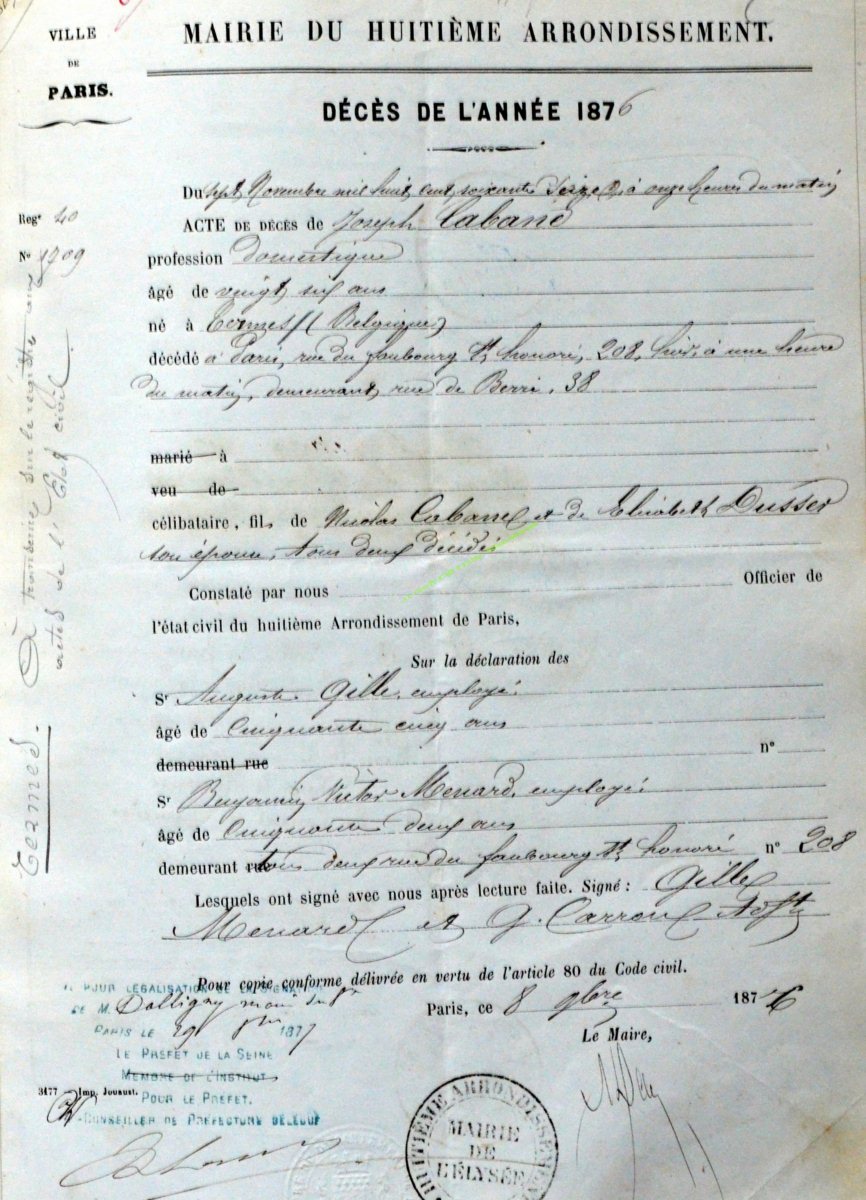 VILLE
DE
PARIS.
MAIRIE DU HUITIÈME ARRONDISSEMENT.
DÉCÈS DE L'ANNÉE 1876
Du sept Novembre mil huit cent soixante Seize, à onze heures du matin
Regᵉ 40
ACTE DE DÉCÈS de Joseph Cabane
Nº 1709
profession Domestique
âgé de vingt six ans
né à Termes (Belgique)
décédé à Paris, rue du faubourg St honoré, 208, hier, à une heure
du matin, demeurant rue de Berri, 38
marié à
veu de
célibataire, fils de Nicolas Cabane et de Elisabeth Dusser
son épouse, tous deux décédés
Constaté par nous Officier de
l'état civil du huitième Arrondissement de Paris,
Sur la déclaration des
Sʳ Auguste Gille, employé
âgé de Cinquante cinq ans
demeurant rue nº
Sʳ Benjamin Victor Menard, employé
âgé de Cinquante deux ans
demeurant rue tous deux rue du faubourg St honoré nº 208
Lesquels ont signé avec nous après lecture faite. Signé : Gille
Menard et G. Carron
Pour copie conforme délivrée en vertu de l'article 80 du Code civil.
Paris, ce 8 9bre 1876
Le Maire,
À transcrire sur le registre aux
actes de l'Etat civil
Termes.
POUR LÉGALISATION DE
DE M. Dalligny
PARIS LE 29 1877
LE PREFET DE LA SEINE
MEMBRE DE L'INSTITUT
3177 Imp. Jouaust.
POUR LE PREFET,
CONSEILLER DE PREFECTURE DÉLÉGUÉ
HUITIÈME ARRONDISSEMENT
MAIRIE
DE
L'ÉLYSÉE